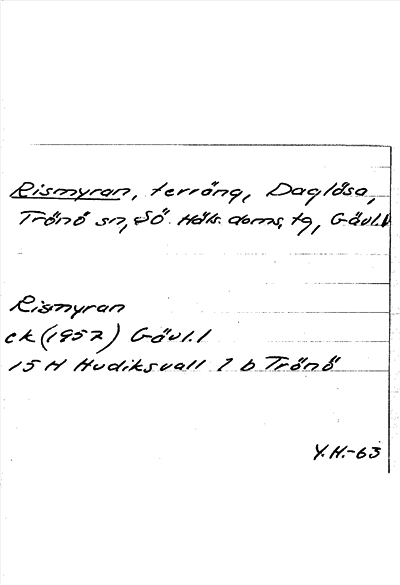 Rismyran, terräng, Daglösa,
Trönö sn, Sö. Häls. doms. tg, Gävl. l
Rismyran
ek (1957) Gävl. l
15 H Hudiksvall 1 b Trönö
Y.H.-63